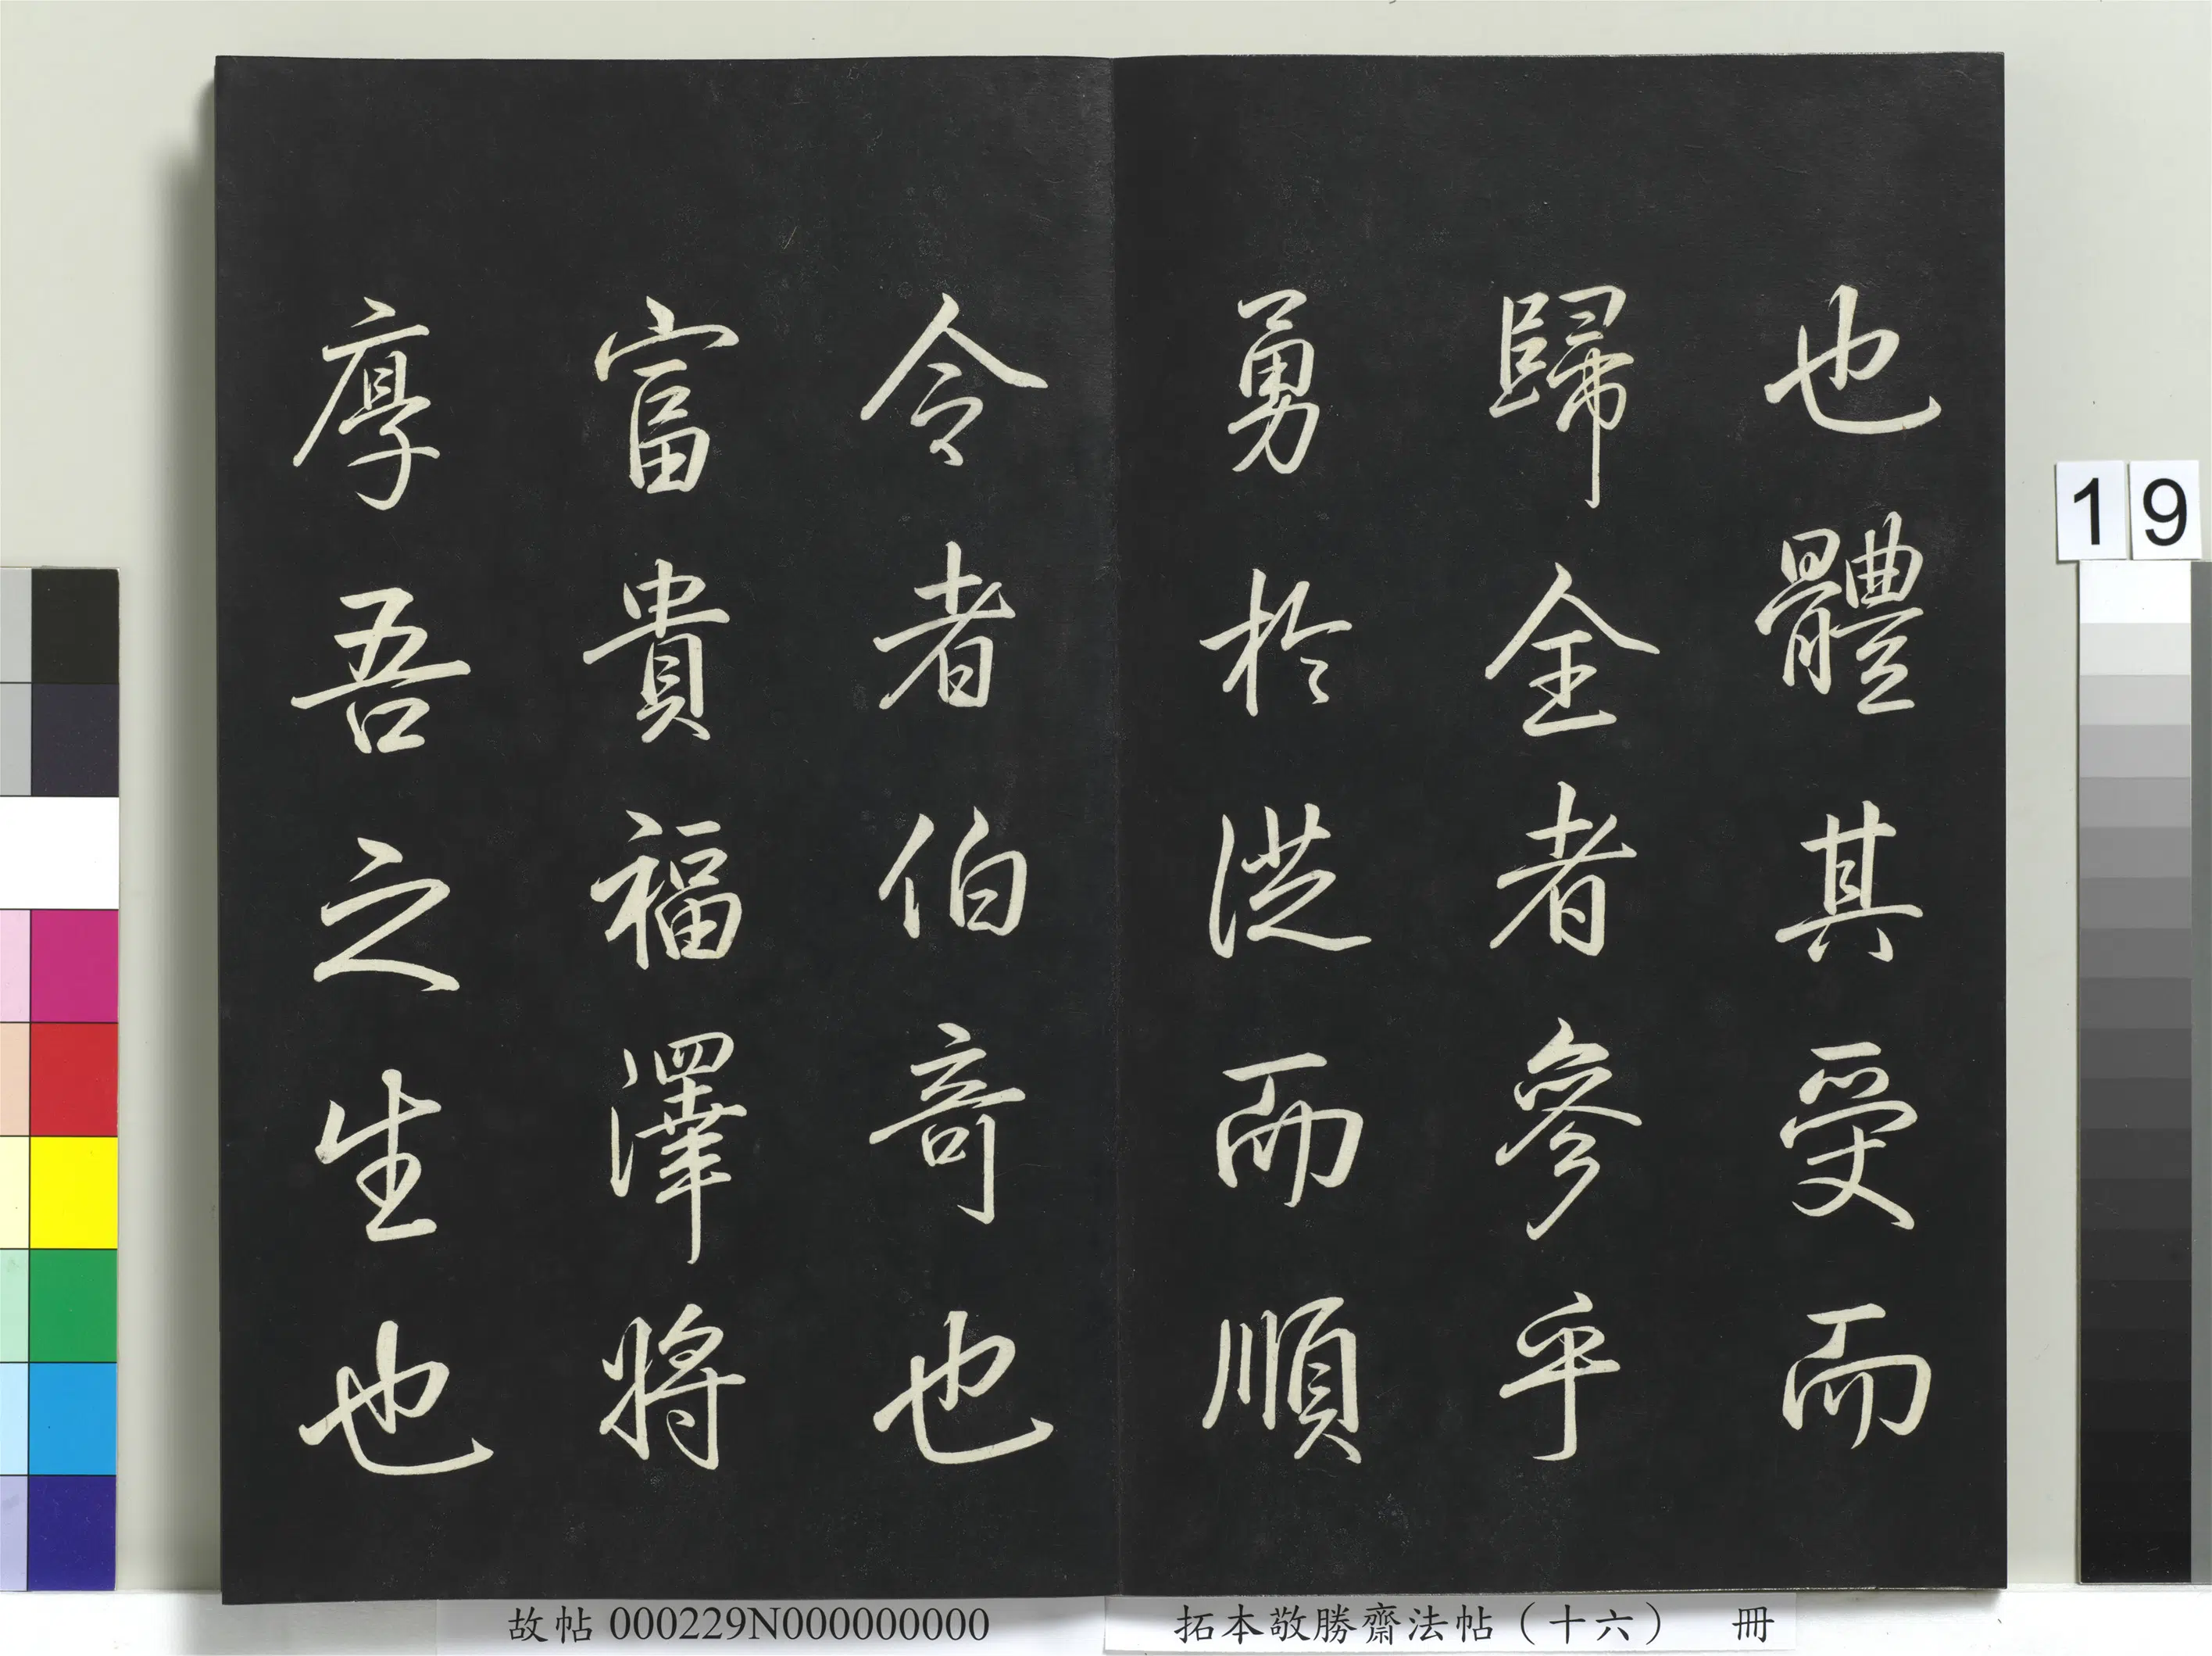 也體其受而
歸全者參乎
勇於從而順
令者伯奇也
富貴福澤將
厚吾之生也
19
故帖 000229N000000000
拓本敬勝齋法帖（十六） 冊